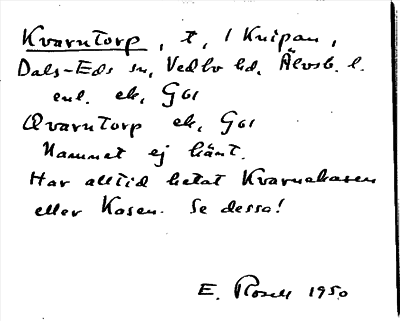 Kvarntorp, t, i Knipan,
Dals-Eds sn, Vedbo hd, Älvsb. l.
enl. ek, G61
Qvarntorp ek, G61
Namnet ej känt.
Har alltid hetat Kvarnekasen
eller Kasen. Se dessa!
E. Rosell 1950